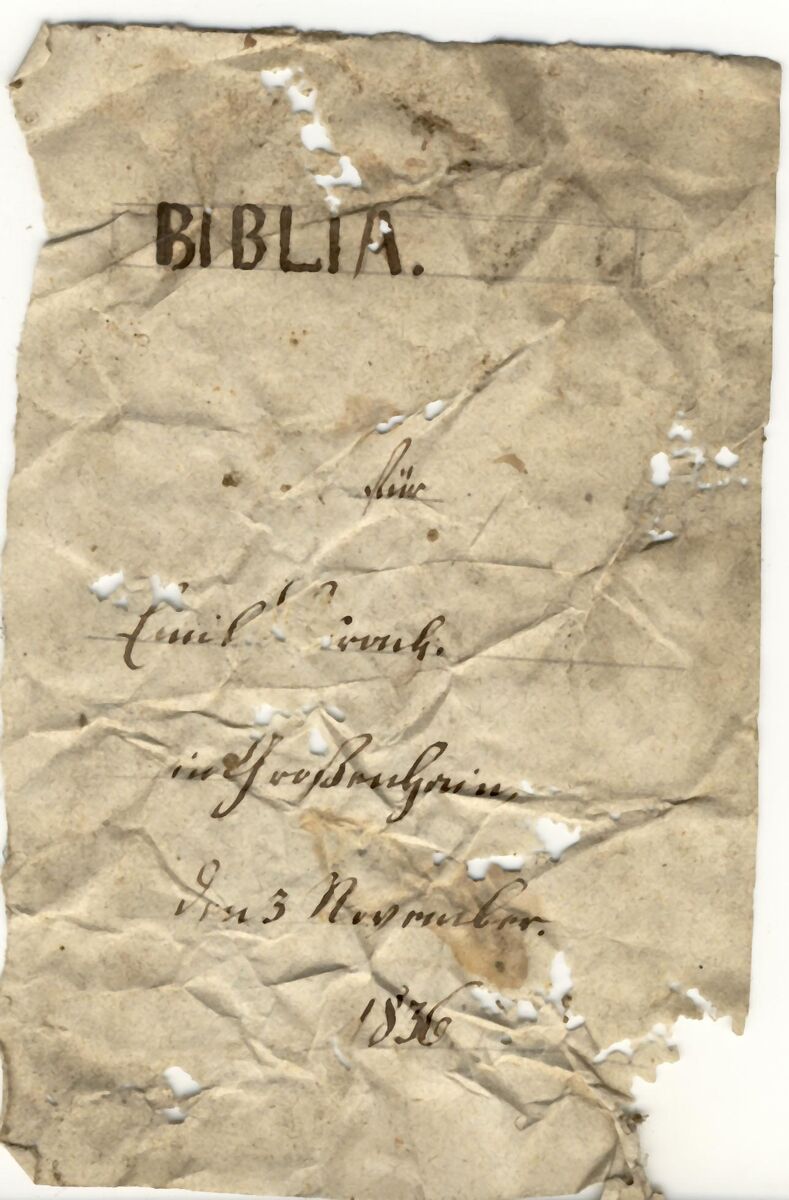 BIBLIA.
für
Emil
in Großenhain,
den 3 November.
1836